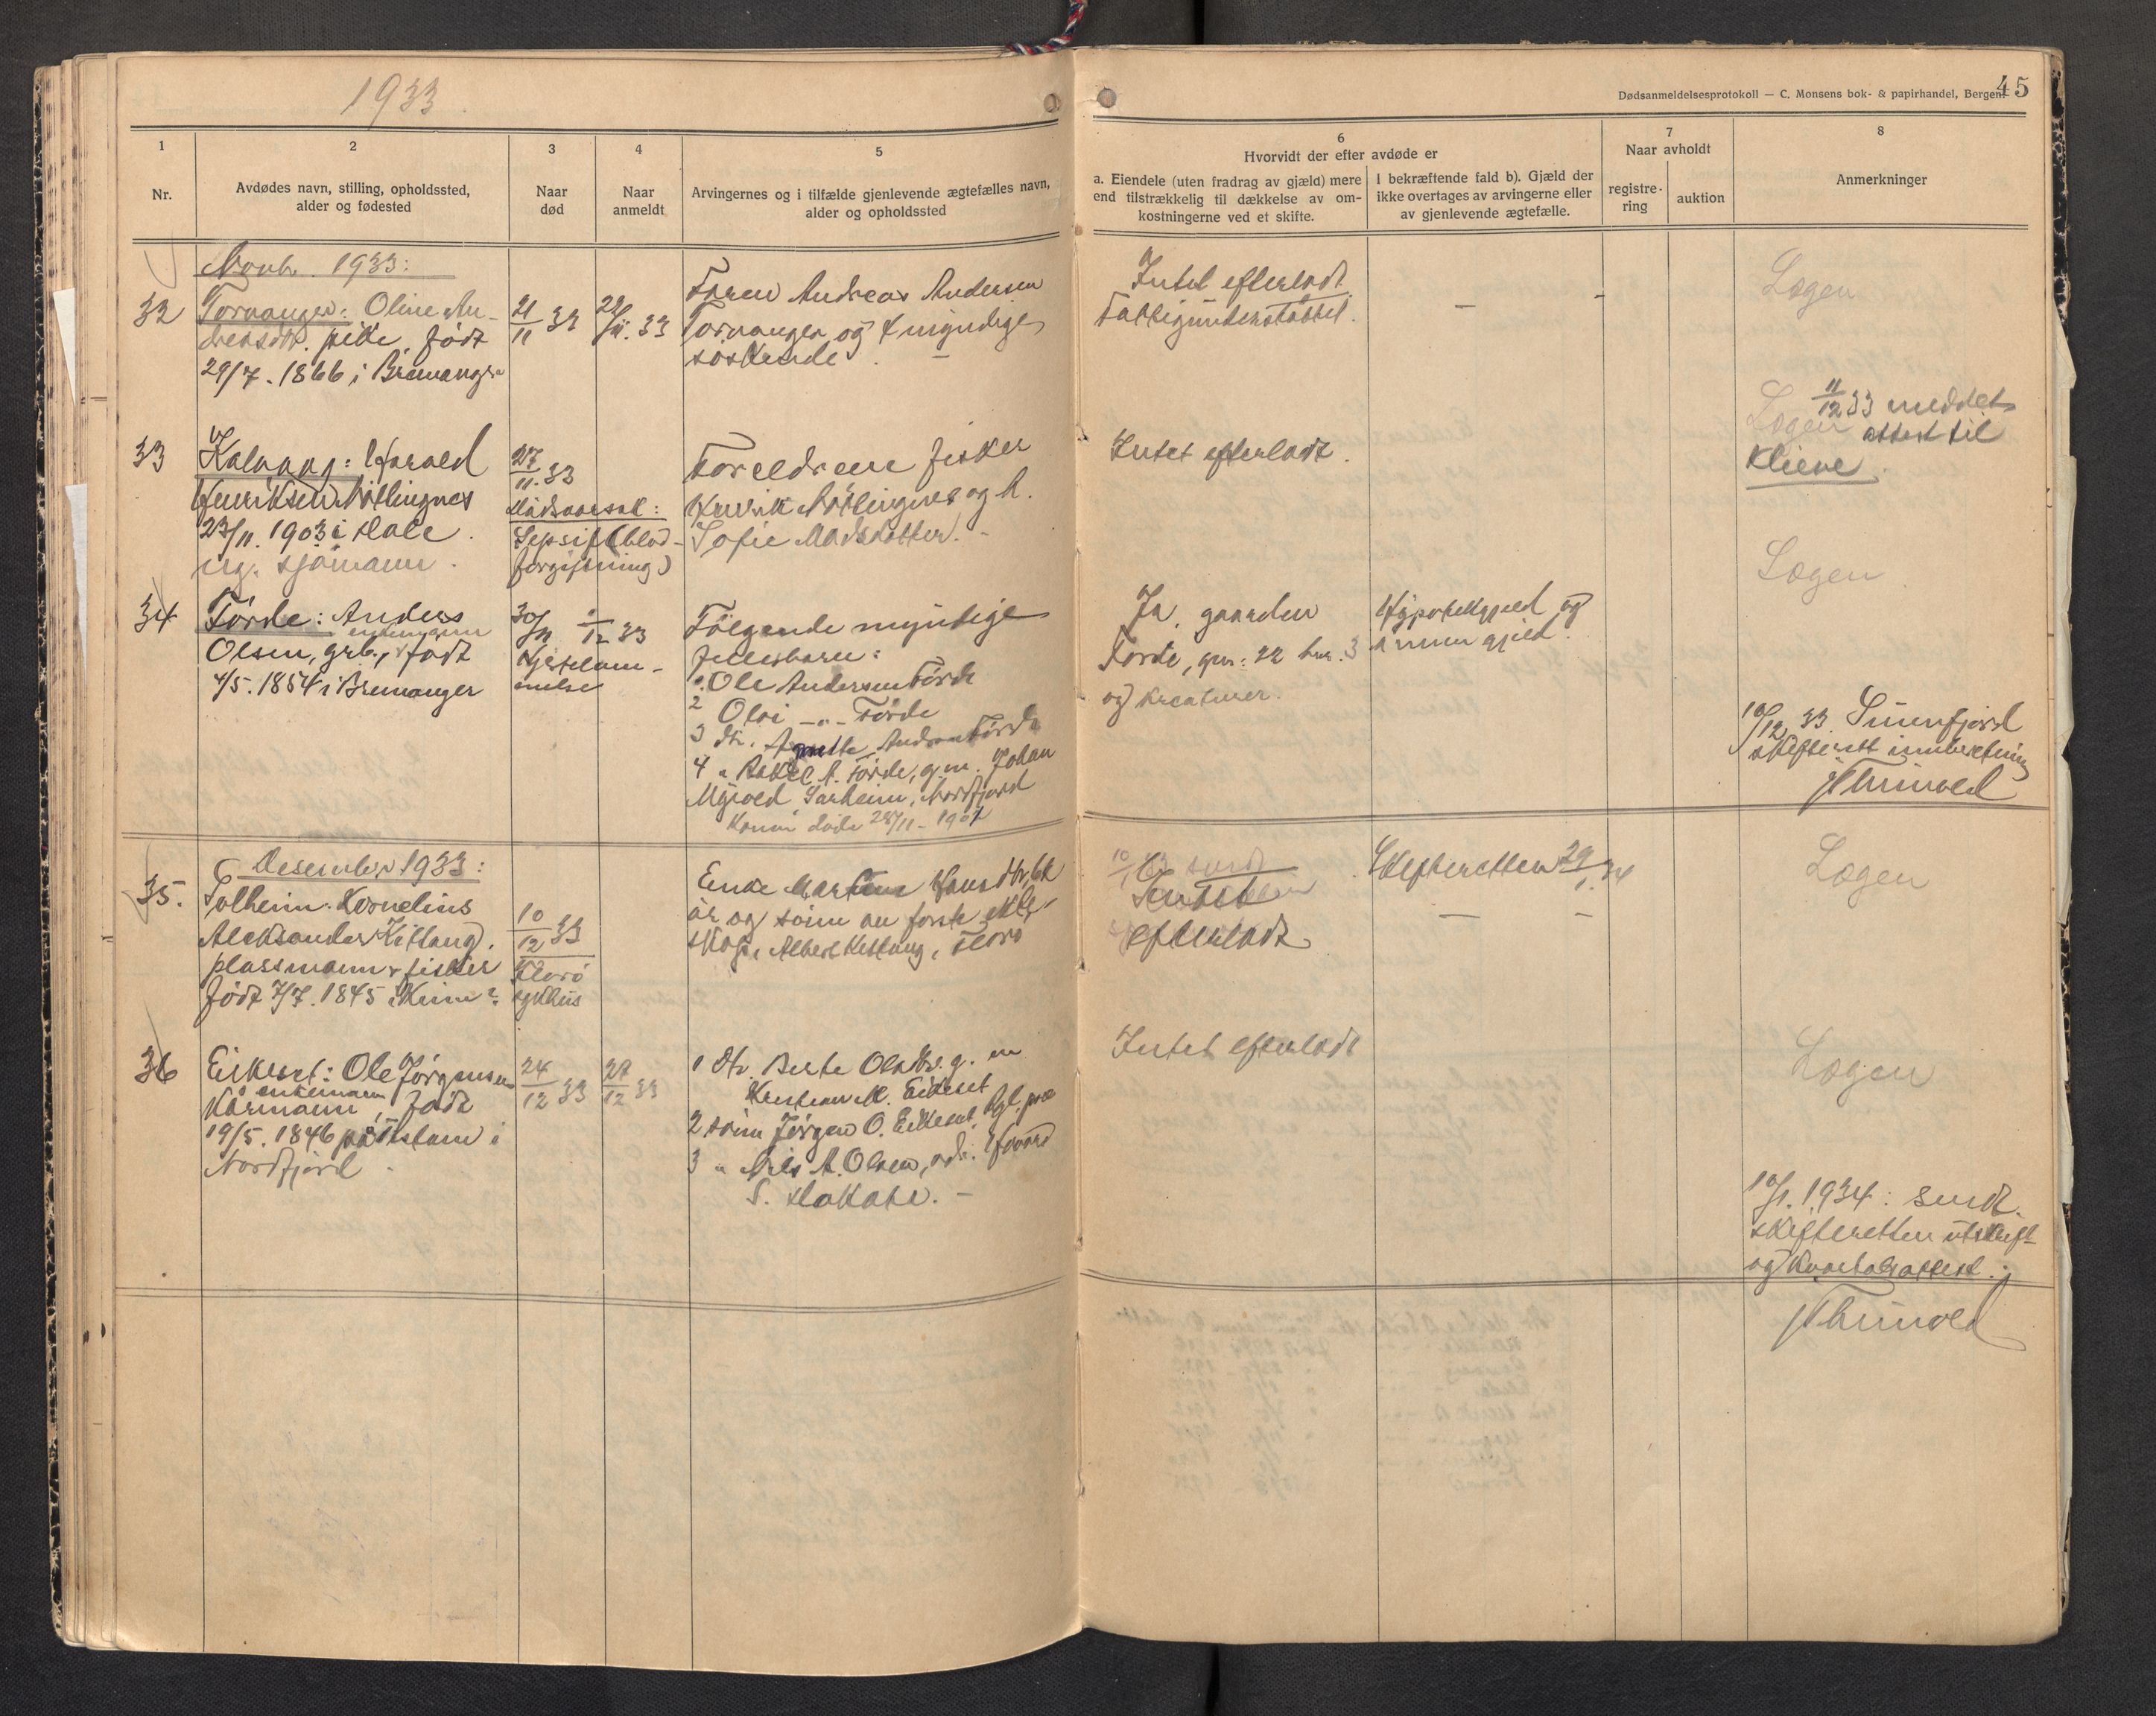 1933
Dødsanmeldelsesprotokoll — C. Monsens bok- & papirhandel, Bergen.
45
1
2
3
4
5
6
7
8
Nr.
Avdødes navn, stilling, opholdssted,
alder og fødested
Naar
død
Naar
anmeldt
Arvingernes og i tilfælde gjenlevende ægtefælles navn,
alder og opholdssted
Hvorvidt der efter avdøde er
a. Eiendele (uten fradrag av gjæld) mere
end tilstrækkelig til dækkelse av om-
kostningerne ved et skifte.
I bekræftende fald b). Gjæld der
ikke overtages av arvingerne eller
av gjenlevende ægtefælle.
Naar avholdt
registre-
ring
auktion
Anmerkninger
Novbr. 1933:
32
Torvanger: Oline An-
dreasdtr. pike, født
29/7. 1866 i Bremanger
21/11 33
22/11. 33
Faren Andreas Andersen
Torvanger og 4 myndige
søskende
Intet efterladt
Fattigunderstøttet.
—
Lægen
33
Kalvaag: Harald
Henriksen
23/11. 1903 i
ug. sjømann.
27/11. 33
Dødsaarsak:
Sepsis (blod-
forgiftning)
Foreldrene fisker
Henrik og h.
Sofie Madsdatter. -
Intet efterladt.
Lægen
11/12 33 meddelt
attest til
34
Førde: Anders
enkemann
Olsen, grb., født
4/5. 1854 i Bremanger
30/11
12 33
Hjertelam-
melse
Følgende myndige
fellesbarn:
1. Ole Andersen Førde
2 Olai -"- Førde
3 dtr. Førde
4 " Rakel A. Førde, g.m. Johan
Nordfjord
Konen døde 28/11 - 1907
Ja, gaarden
Førde, gnr. 22 bnr. 3
og kreaturer.
Hypotekgjeld og
annen gjeld.
Lægen
10/12 33. Sunnfjord
skifterett innberetning
Desember 1933:
35.
Solheim: Kornelius
Aleksander
plassmann & fisker
født 7/7. 1845 i Kinn
10/12 33
Florø
sykhus
Enke Hansdtr,
år og sønn av første ekte-
skap, Albert Florø
10/1 33 sendt
Intet
efterladt
Skifteretten 29/1. 34
—
Lægen
36
Ole Jørgensen
enkemann
Kårmann, født
19/5. 1846 på i
Nordfjord.
24/12 33
27/12 33
1 dtr. Berte Olsdtr. g. m
Kristian M.
2 sønn Jørgen O.
3 " Nils A. Olsen, adr.
S. Dakota. —
Intet efterladt
Lægen
10/1. 1934: sendt
skifteretten utskrift
og kvartalsattest.